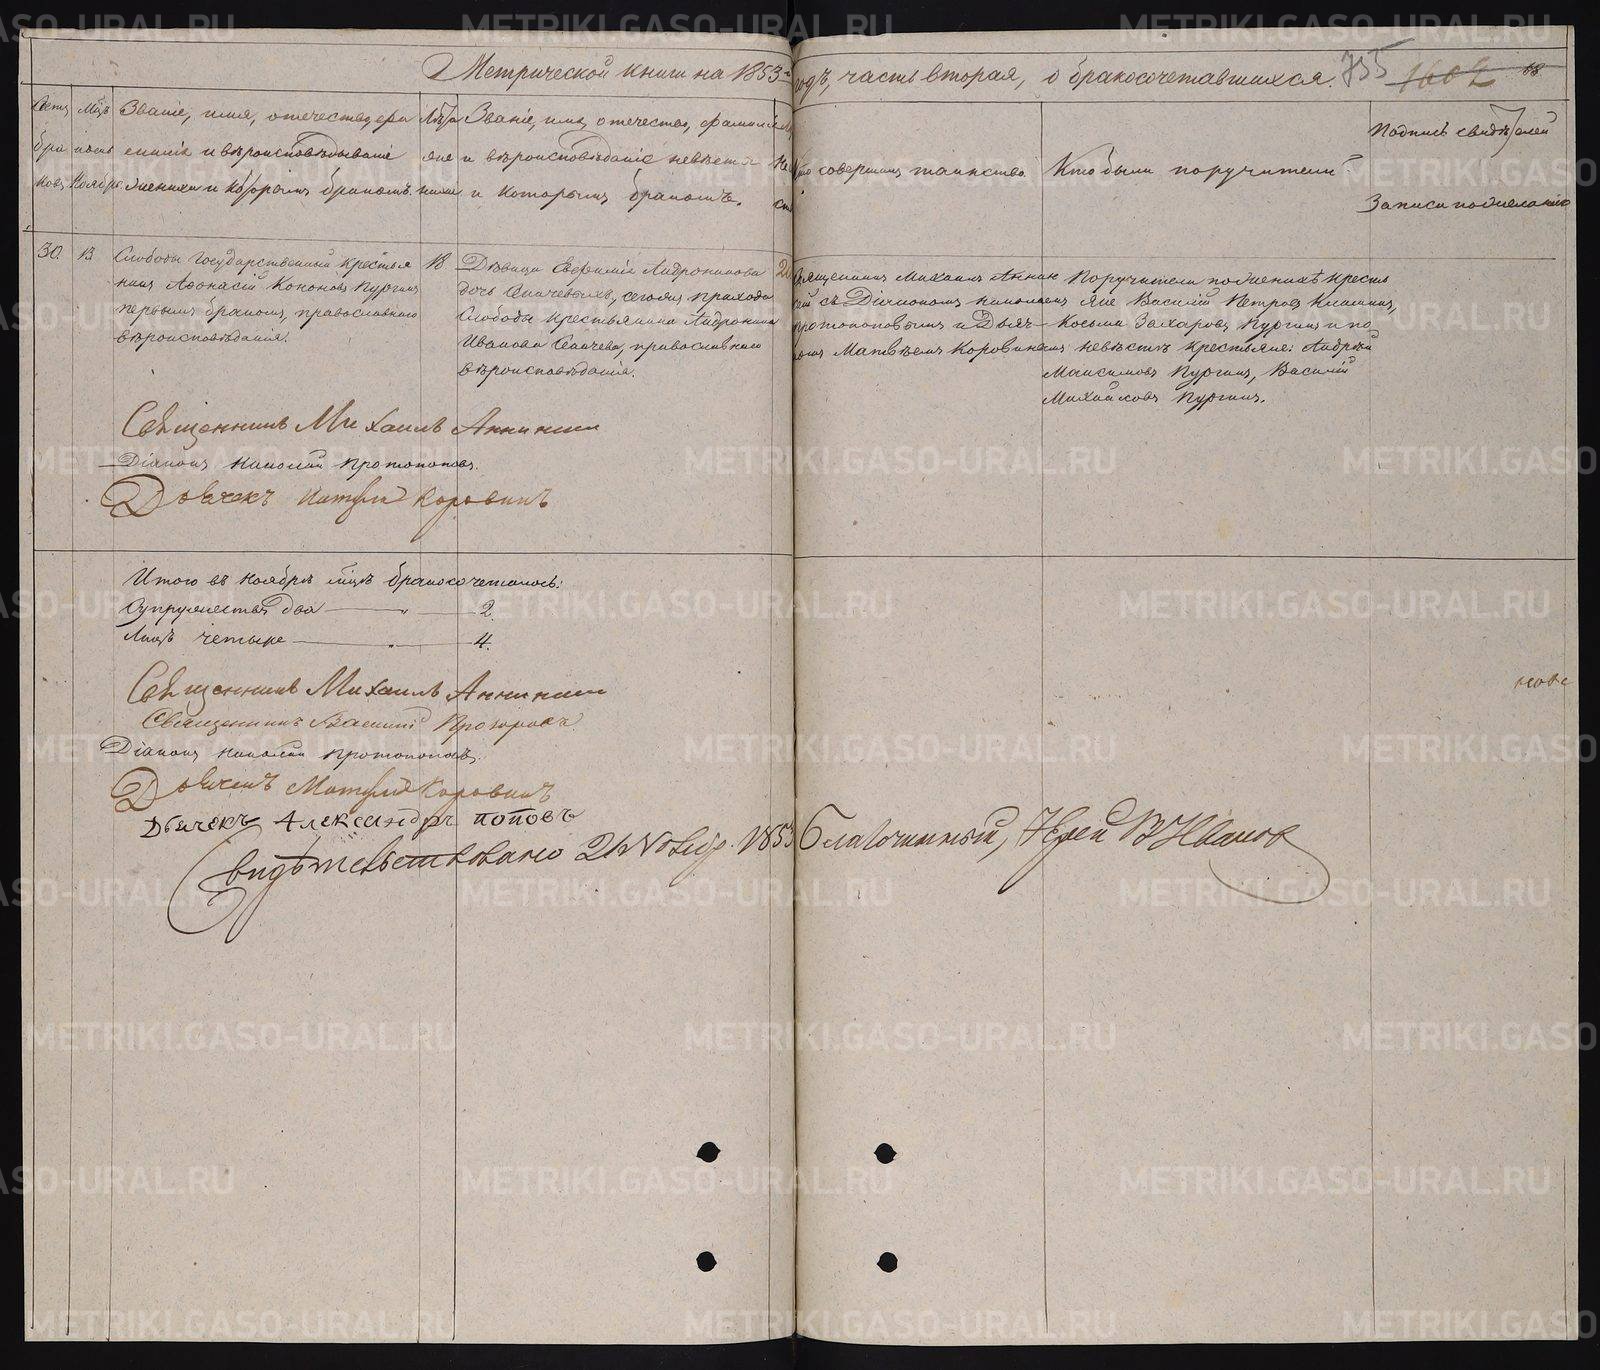 Метрической книги на 1853й годъ, часть вторая, о бракосочетавшихся.
755
1602
88
Счетъ бра ковъ
Мцъ Ноябрь
Званіе, имя, отечество, фа
милія и вѣроисповѣданіе
жениха и которымъ бракомъ.
Лѣта же ниха
Званіе, имя, отечество, фамилія
и вѣроисповѣданіе невѣсты
и которымъ бракомъ.
Кто совершалъ таинство
Кто были поручители
Подпись свидѣтелей
Записи по желанію
30.
13
Слободы Государственный крестья
нинъ Аѳонасій Кононовъ Пургинъ
первымъ бракомъ, православнаго
вѣроисповѣданія.
18
Дѣвица Евфимія Андроникова
дочь сегожъ прихода
Слободы крестьянина Андроника
Иванова православнаго
вѣроисповѣданія.
20
Священникъ Михаилъ Аннин
съ Діакономъ Николаемъ
Протопоповымъ и Дьяч
комъ Матвѣемъ Коровинымъ
Поручители по женихѣ крестья
яне Василій Петровъ
Косьма Захаровъ Пургинъ и по
невѣстѣ крестьяне: Андрей
Максимовъ Пургинъ, Василій
Михайловъ Пургинъ.
Священникъ Михаилъ Аннинскій
Діаконъ Николай Протопоповъ.
Дьячекъ Матѳій Коровинъ
Итого въ Ноябрѣ мцѣ бракосочеталось:
Супружества два — „ — 2.
Лицъ четыре — „ — 4.
Священникъ Михаилъ Аннинскій
Священникъ Василій
Діаконъ Николай Протопоповъ.
Дьячекъ Матѳій Коровинъ
Дьячекъ Александръ Поповъ
Свидѣтельствовано 1853 Благочинный, Іерей В Ивановъ
METRIKI.GASO-URAL.RU